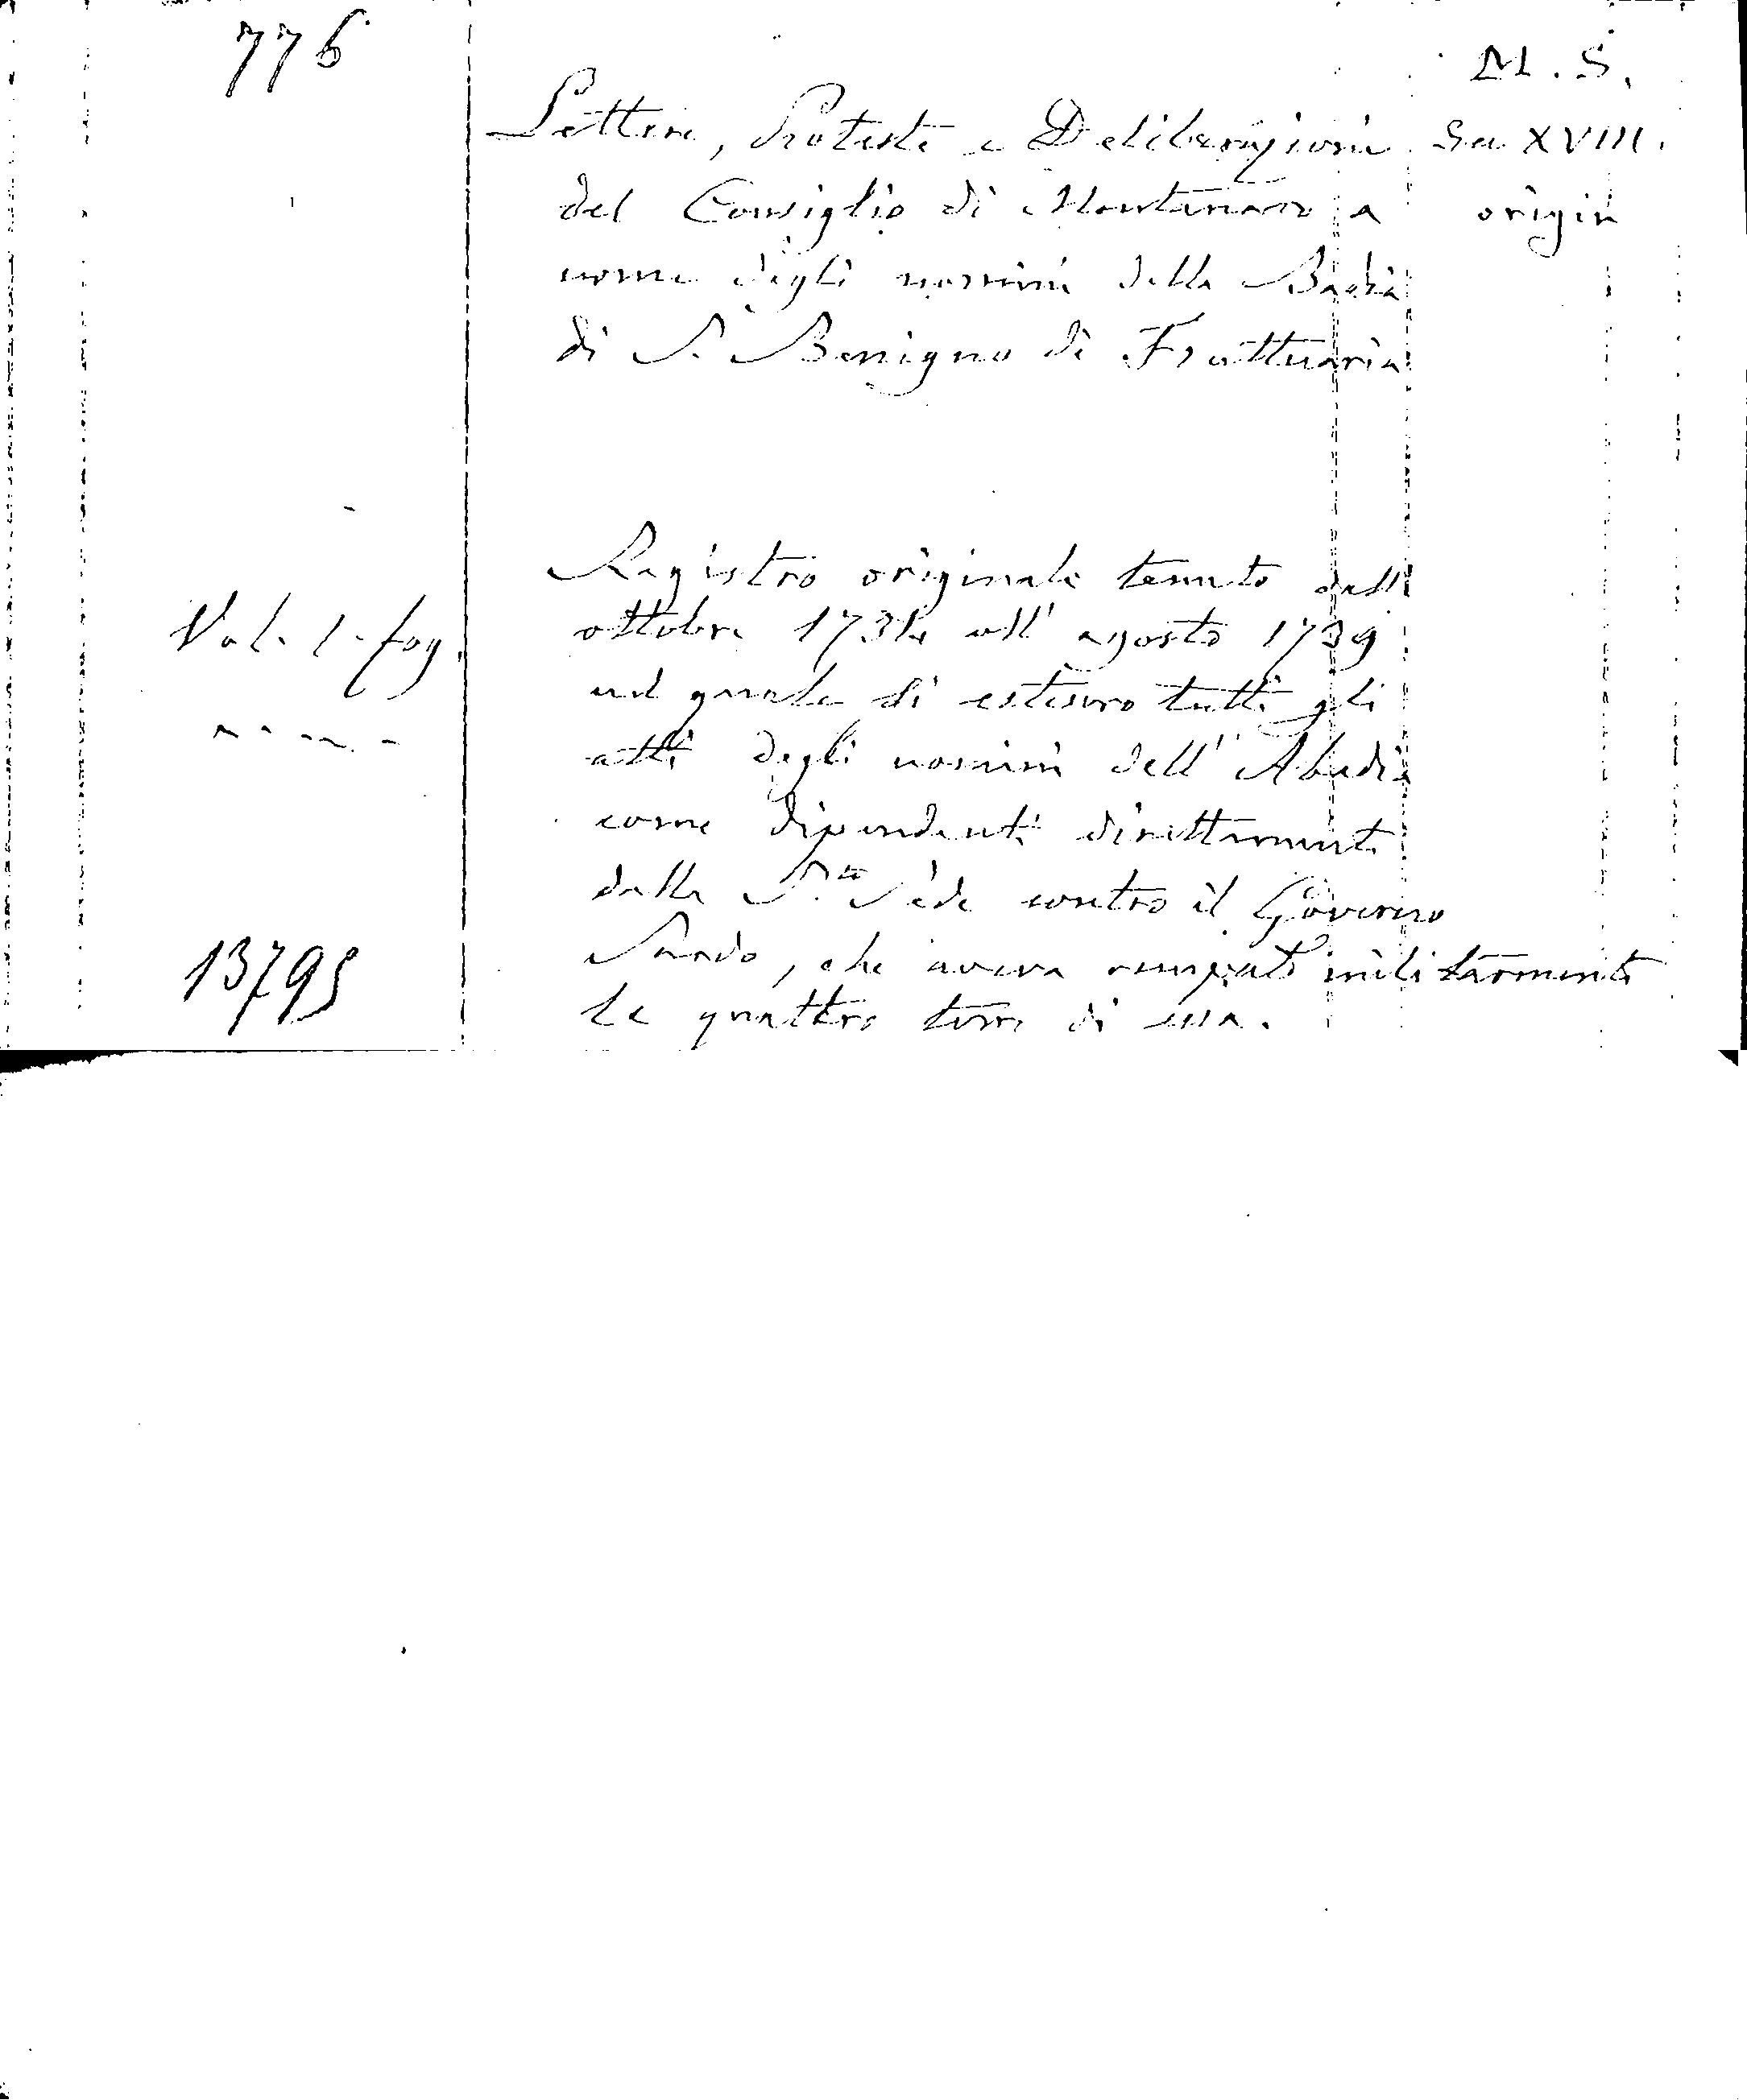 776
M. S.
Lettere, Proteste e Deliberazioni Sec XVIII.
del Consiglio di Montanaro a origin
nome degli uomini della Badia
di S. Benigno di Fruttuaria
Registro originale tenuto dall'
Vol. 1. fog.
ottobre 1734 all' agosto 1739
nel quale si estesero tutti gli
atti degli uomini dell' Abadia
come dipendenti direttamente
dalla S.ta Sede contro il Governo
Sardo, che aveva occupato militarmente
13795
le quattro terre di essa.